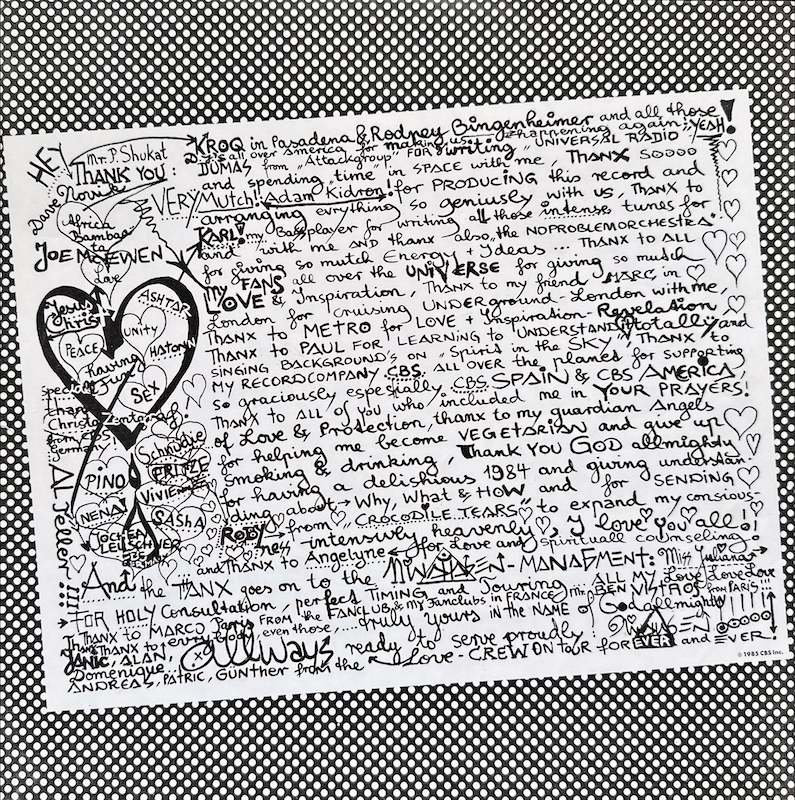 HEY
Mr. P. Shukat
THANK YOU:
Dave Novik
Africa
Bambaata
JOE McEWEN
Love
Jesus
Christ
ASHTAR
UNITY
PEACE
HATONN
having
Fun
SEX
specially
thanx
Christo Zentgraf.
from CBS
Germany
Schnudie
FRITZE
PiNO
ViViENNE
NENA
SAShA
JOCHEN
LEUSCHNER
CBS
GERMANY
Al Teller !!!!
KROQ in Pasadena & Rodney Bingenheimer and all those
D.J.'s all over America for making us happening again; YEAH!
DUMAS from "Attackgroup" FOR writing "UNIVERSAL RADIO"
and spending time in SPACE with me, THANX SOOOO
VERY Mutch! Adam Kidron! for PRODUCING this record and
arranging evrything so geniusely with us, THANX to
KARL! my Bassplayer for writing all those intense tunes for
and with me AND thanx also, the NOPROBLEMORCHESTRA"
for giving so mutch Energy + Ideas... THANX to ALL
my FANS all over the UNIVERSE for giving so mutch
LOVE & Inspiration, THANX to my friend MARC, in
London for cruising UNDERground-London with me,
THANX to METRO for LOVE + Inspiration - Revelation
THANX to PAUL FOR LEARNiNG to UNDERSTAND totally and
SiNGiNG BACKGROUND's ON "SpiriT in the SKY" THANX to
MY RECORDCOMPANY CBS. ALL OVER the planet for supporting
so graciously especially CBS SPAiN & CBS AMERiCA,
THANX to ALL of you who included me in YOUR PRAYERS!
of Love & Protection, thanx to my guardian Angels
for helping me become VEGETARiAN and give up
smoking & drinking, Thank You GOD allmighty
for having a delishious 1984 and giving understan-
ding about Why, What & HOW and for SENDING
ROBY from "CROCODiLE TEARS" to expand my conscious-
ness intensively heavenly, I love you all!
and THANX to Angelyne for Love and spirituall counseling
And the THANX goes on to the MANAGMENT: Miss Juliana
FOR HOLY Consultation, perfect TiMiNG and Touring ALL MY Love Love Love
THANX TO MARCO, Paris FROM the FANCLUB & my Fanclubs in FRANCE, Mr. BEN VISTROS from PARIS!!!
THANX to everybody even those,.... truly yours iN the NAME of God allmighty
JANiC, ALAN, allways ready to serve proudly
Domenique, from the Love-CREW ON TOUR for EVER and EVER!
ANDREAS, PATRiC, GÜNTHER
© 1985 CBS Inc.